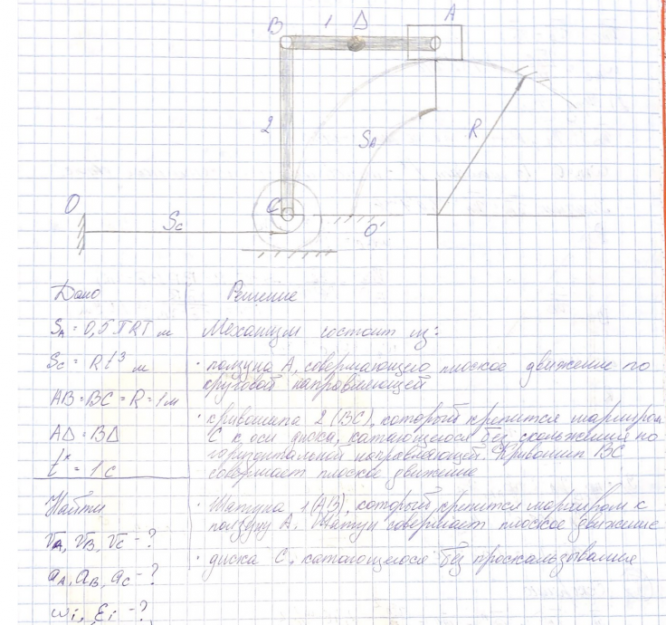 B 1 Δ A
2
S_A
R
O
S_C
C
O'
Дано
S_A = 0,5πRt м
S_C = Rt³ м
AB = BC = R = 1 м
AΔ = BΔ
t* = 1 с
Найти
v_A, v_B, v_C - ?
a_A, a_B, a_C - ?
ω_i, ε_i - ?
Решение
Механизм состоит из:
· ползуна A, совершающего плоское движение по
круговой направляющей
· кривошипа 2 (BC), который крепится шарниром
C к оси диска, катающегося без скольжения по
горизонтальной направляющей. Кривошип BC
совершает плоское движение
· Шатуна 1 (AB), который крепится шарниром к
ползуну A. Шатун совершает плоское движение
· диска C, катающегося без проскальзывания